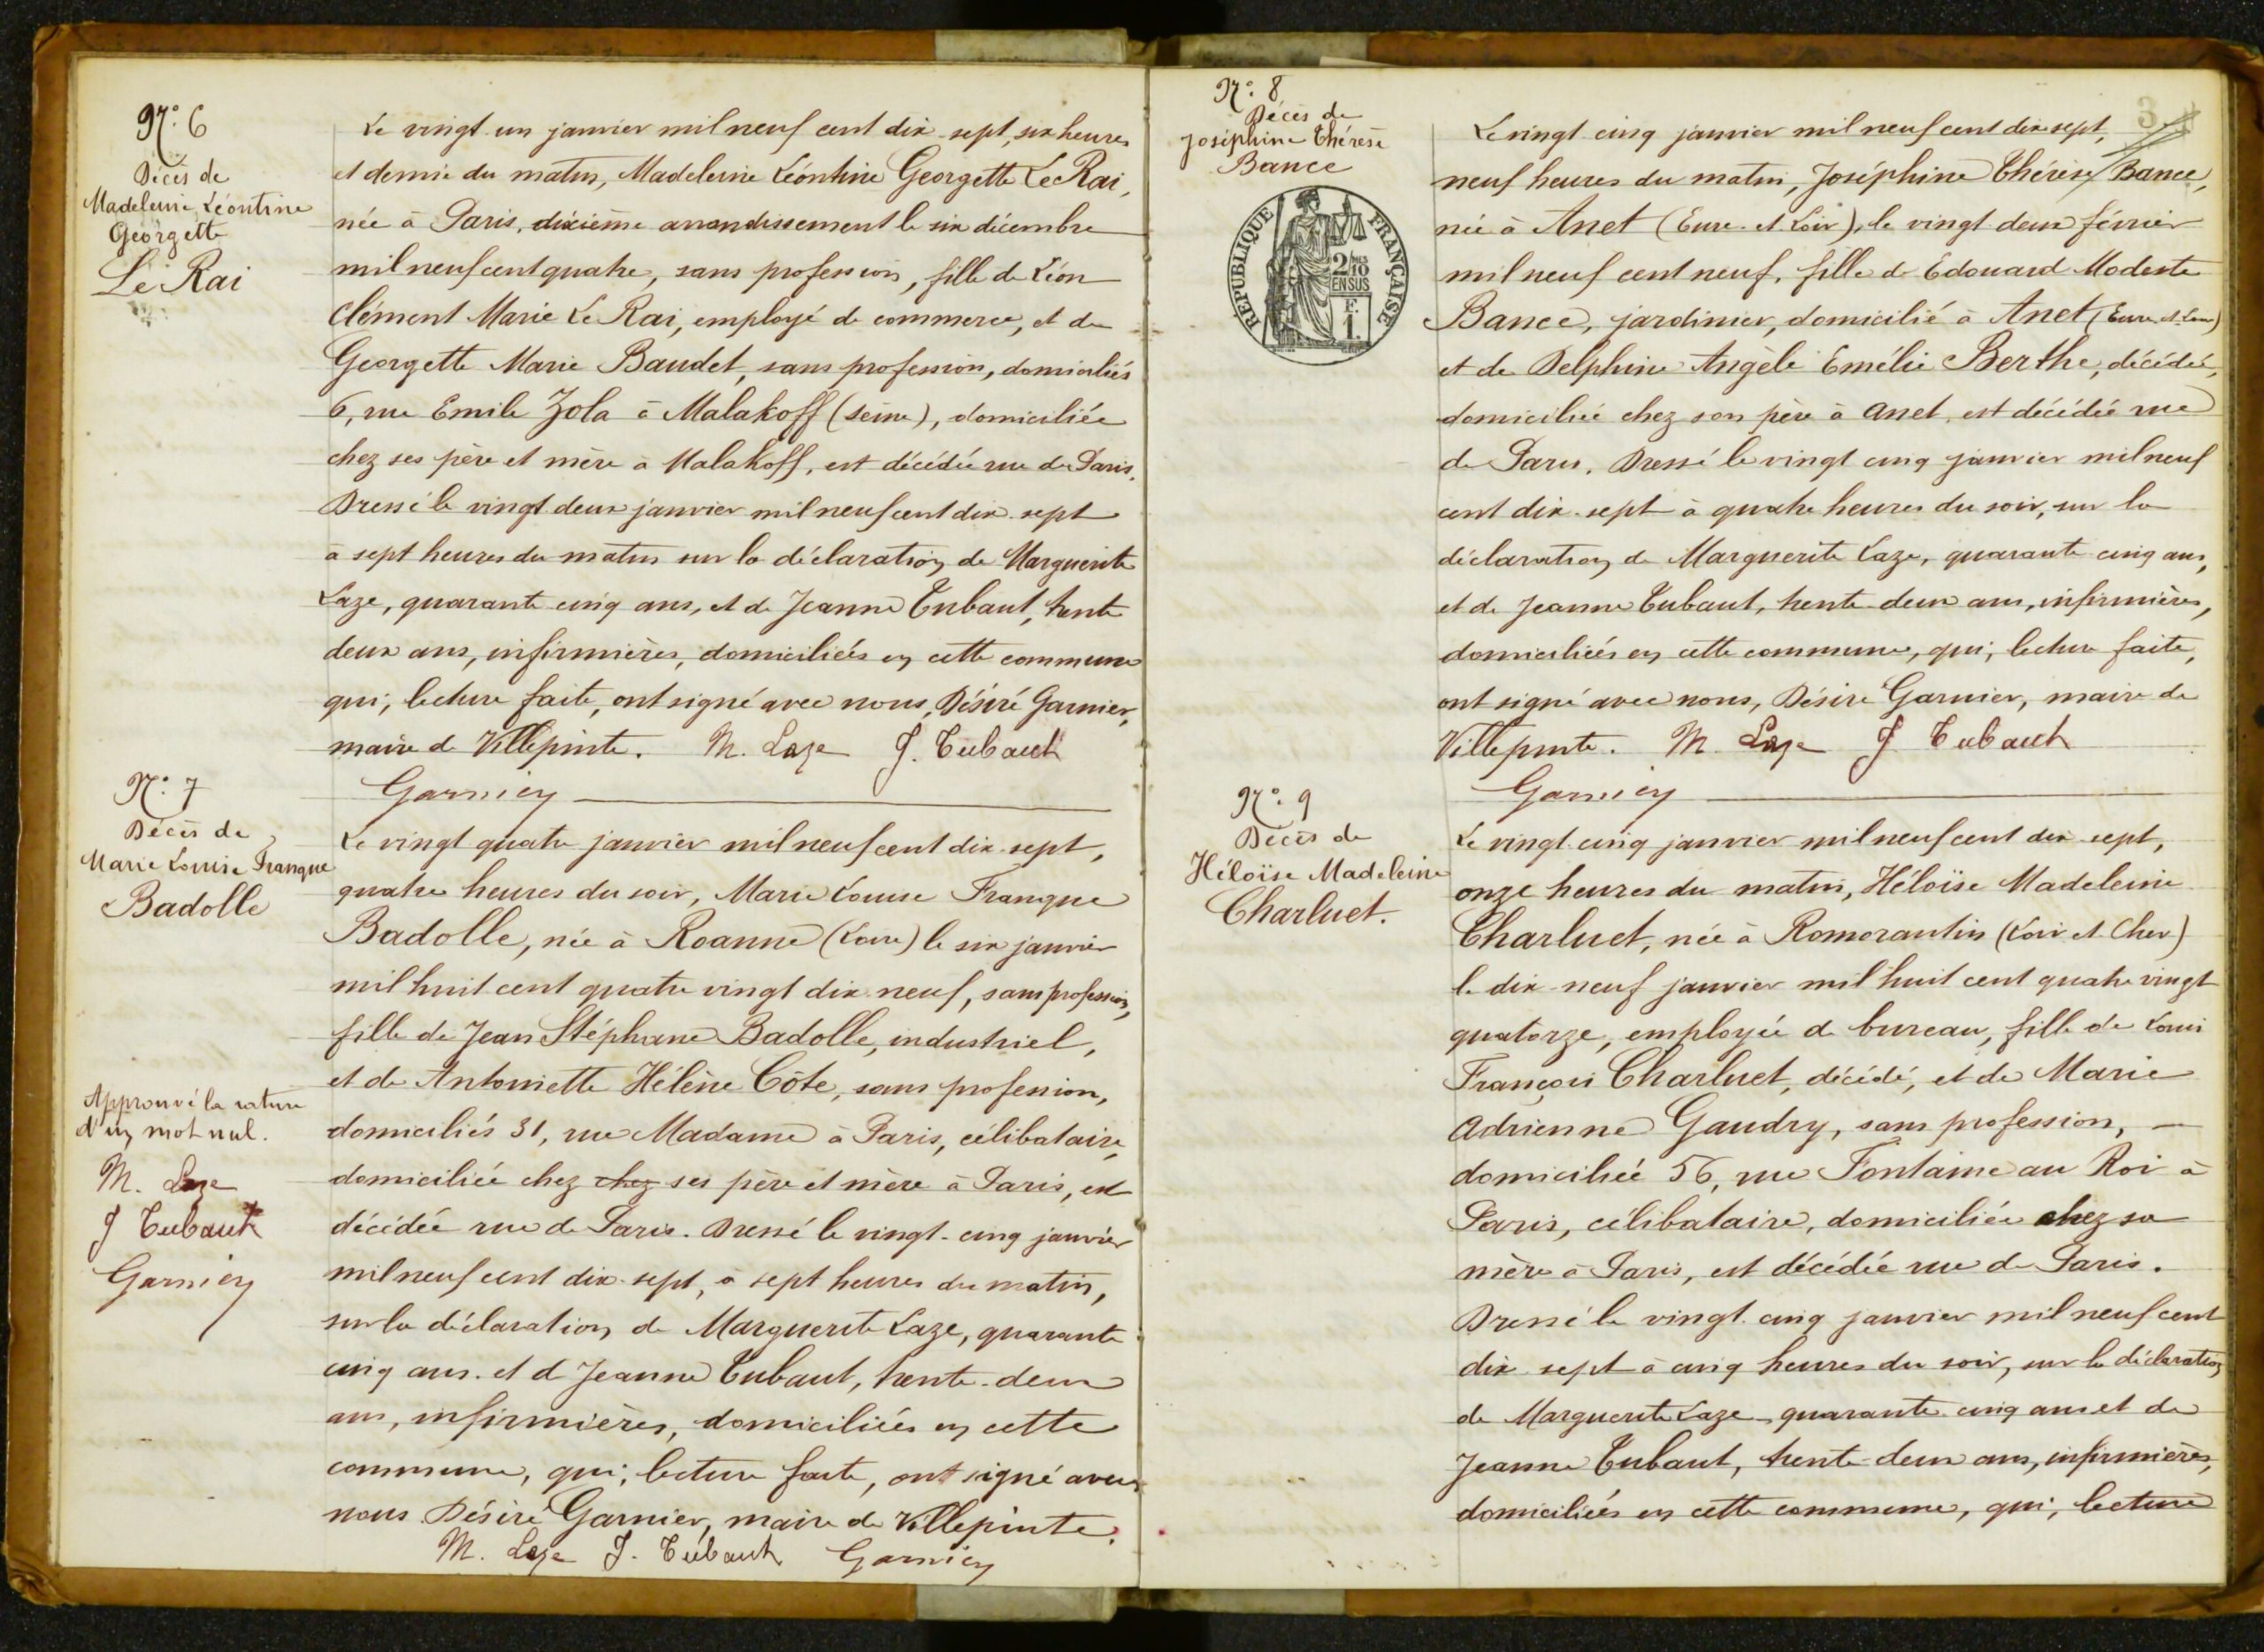 N° 6
Décès de
Madeleine Léontine
Georgette
Le Rai
Le vingt un janvier mil neuf cent dix-sept, six heures
et demie du matin, Madeleine Léontine Georgette Le Rai,
née à Paris, dixième arrondissement le six décembre
mil neuf cent quatre, sans profession, fille de Léon
Clément Marie Le Rai, employé de commerce, et de
Georgette Marie Baudet, sans profession, domiciliés
6, rue Emile Zola à Malakoff (Seine), domiciliée
chez ses père et mère à Malakoff, est décédée rue de Paris.
Dressé le vingt deux janvier mil neuf cent dix-sept
à sept heures du matin sur la déclaration de Marguerite
Laze, quarante cinq ans, et de Jeanne Tubaut, trente
deux ans, infirmières, domiciliées en cette commune
qui, lecture faite, ont signé avec nous, Désiré Garnier,
maire de Villepinte. M. Laze J. Tubaut
Garnier
N° 7
Décès de
Marie Louise Franque
Badolle
Le vingt quatre janvier mil neuf cent dix-sept,
quatre heures du soir, Marie Louise Franque
Badolle, née à Roanne (Loire) le six janvier
mil huit cent quatre vingt dix neuf, sans profession,
fille de Jean Stéphane Badolle, industriel,
et de Antoinette Hélène Côte, sans profession,
domiciliés 31, rue Madame à Paris, célibataire,
domiciliée chez chez ses père et mère à Paris, est
décédée rue de Paris. Dressé le vingt-cinq janvier
mil neuf cent dix-sept, à sept heures du matin,
sur la déclaration de Marguerite Laze, quarante
cinq ans. et d Jeanne Tubaut, trente-deux
ans, infirmières, domiciliées en cette
commune, qui, lecture faite, ont signé avec
nous Désiré Garnier, maire de Villepinte.
M. Laze J. Tubaut Garnier
Approuvé la rature
d'un mot nul.
M. Laze
J Tubaut
Garnier
N° 8
Décès de
Joséphine Thérèse
Bance
RÉPUBLIQUE FRANÇAISE
2/10
EN SUS
F.
1.
3
Le vingt cinq janvier mil neuf cent dix sept,
neuf heures du matin, Joséphine Thérèse Bance,
née à Anet (Eure-et-Loir), le vingt deux février
mil neuf cent neuf, fille de Edouard Modeste
Bance, jardinier, domicilié à Anet (Eure-et-Loir)
et de Delphine Angèle Emélie Berthe, décédée,
domiciliée chez son père à Anet, est décédée rue
de Paris. Dressé le vingt cinq janvier mil neuf
cent dix-sept à quatre heures du soir, sur la
déclaration de Marguerite Laze, quarante-cinq ans,
et de Jeanne Tubaut, trente-deux ans, infirmières,
domiciliées en cette commune, qui, lecture faite,
ont signé avec nous, Désiré Garnier, maire de
Villepinte. M. Laze J Tubaut
Garnier
N° 9
Décès de
Héloïse Madeleine
Charluet.
Le vingt-cinq janvier mil neuf cent dix-sept,
onze heures du matin, Héloïse Madeleine
Charluet, née à Romorantin (Loir et Cher)
le dix-neuf janvier mil huit cent quatre vingt
quatorze, employée de bureau, fille de Louis
François Charluet, décédé, et de Marie
Adrienne Gaudry, sans profession, —
domiciliée 56, rue Fontaine au Roi à
Paris, célibataire, domiciliée chez sa
mère à Paris, est décédée rue de Paris.
Dressé le vingt-cinq janvier mil neuf cent
dix-sept à cinq heures du soir, sur la déclaration
de Marguerite Laze, quarante-cinq ans et de
Jeanne Tubaut, trente-deux ans, infirmières,
domiciliées en cette commune, qui, lecture